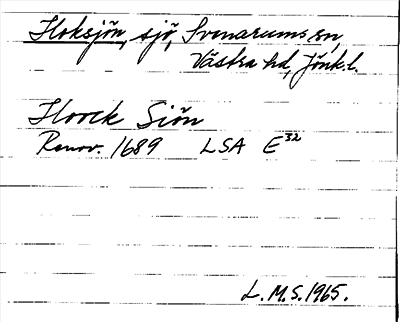 Hoksjön, sjö, Svenarums sn,
Västra hd, Jönk.l.
Hoock Siön
Renov. 1689 LSA E32
L.M.S.1965.